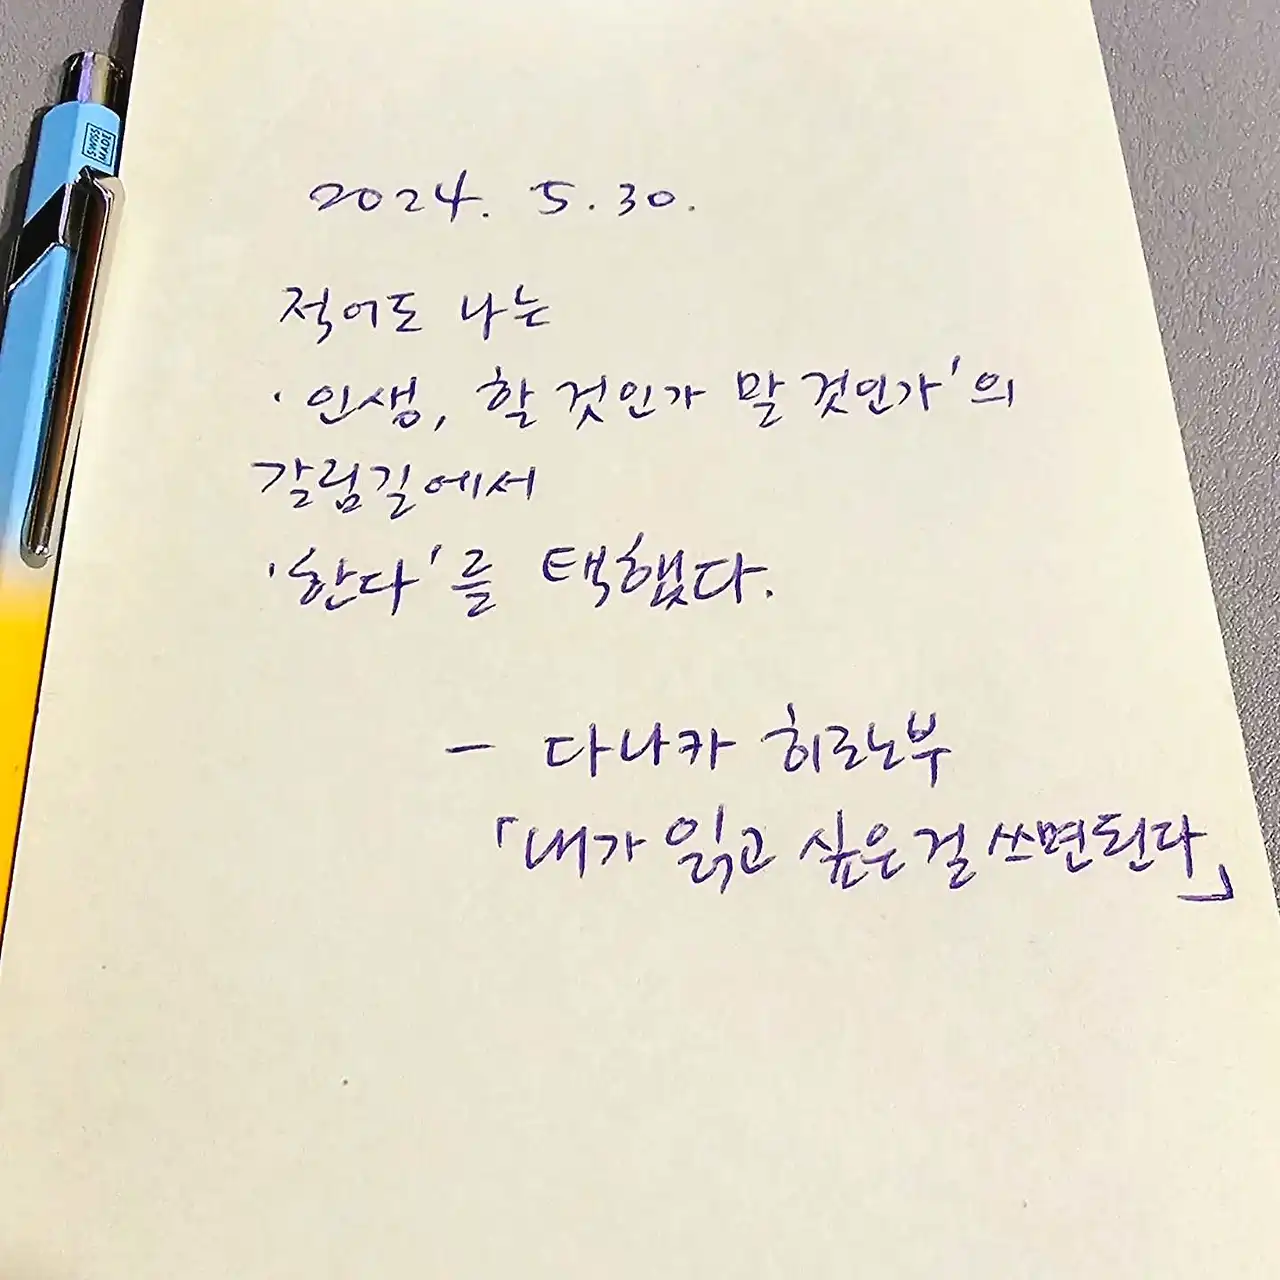 SWISS
MADE
2024. 5.30.
적어도 나는
'인생, 할 것인가 말 것인가'의
갈림길에서
'한다'를 택했다.
- 다나카 히로노부
「내가 읽고 싶은 걸 쓰면 된다」